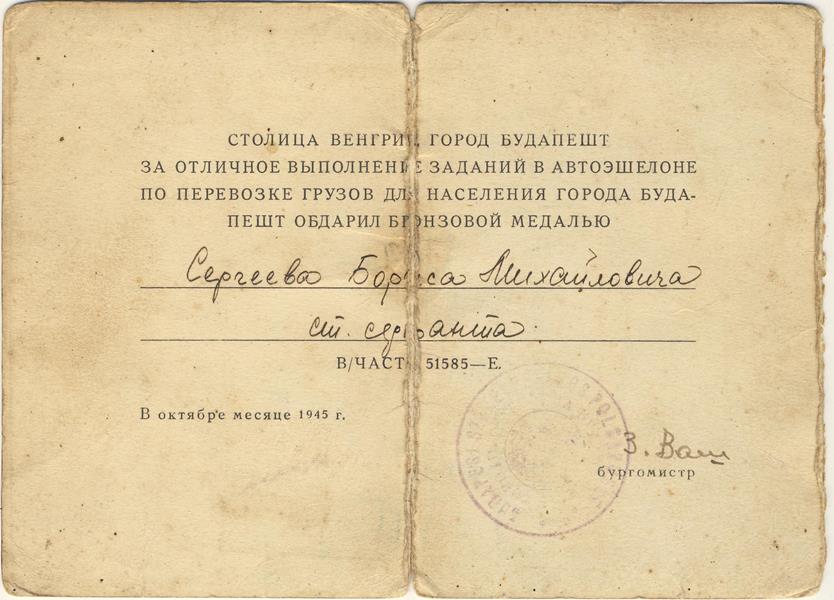 СТОЛИЦА ВЕНГРИИ, ГОРОД БУДАПЕШТ
ЗА ОТЛИЧНОЕ ВЫПОЛНЕНИЕ ЗАДАНИЙ В АВТОЭШЕЛОНЕ
ПО ПЕРЕВОЗКЕ ГРУЗОВ ДЛЯ НАСЕЛЕНИЯ ГОРОДА БУДА-
ПЕШТ ОБДАРИЛ БРОНЗОВОЙ МЕДАЛЬЮ
Сергеева Бориса Михайловича
ст. сержанта
В/ЧАСТЬ 51585—Е.
В октябре месяце 1945 г.
З. Ваш
бургомистр